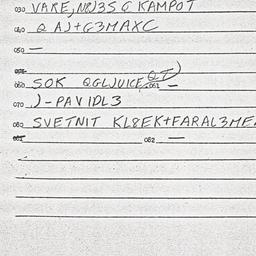 030 VARE, NRJ3S G KAMPOT
040 Q AJ+G3MAXC
050 —
060 SOK QGLJUICE QT)
061 —
070 )-PAVIDL3
080 SVETNIT KL8EK+FARAL3ME
082 —